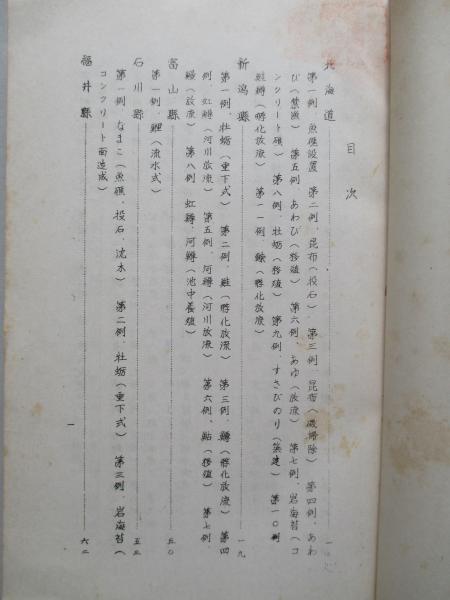 目次
北海道
第一例、魚礁設置 第二例、昆布(投石) 第三例、昆布(磯掃除) 第四例、あわ
び(禁漁) 第五例、あわび(移殖) 第六例、あゆ(放流) 第七例、岩海苔(コ
ンクリート礁) 第八例、牡蛎(移殖) 第九例、すさびのり(簗建) 第一〇例
鮭鱒(孵化放流) 第一一例、鰊(孵化放流)
新潟縣 一九
第一例、牡蛎(垂下式) 第二例、鮭(孵化放流) 第三例、鱒(孵化放流) 第四
例、虹鱒(河川放流) 第五例、河鱒(河川放流) 第六例、鮎(移殖) 第七例、
鰻(放流) 第八例、虹鱒、河鱒(池中養殖)
富山縣 五〇
第一例、鯉(流水式)
石川縣 五三
第一例、なまこ(魚礁、投石、沈木) 第二例、牡蛎(垂下式) 第三例、岩海苔(
コンクリート面造成)
福井縣 六二
一